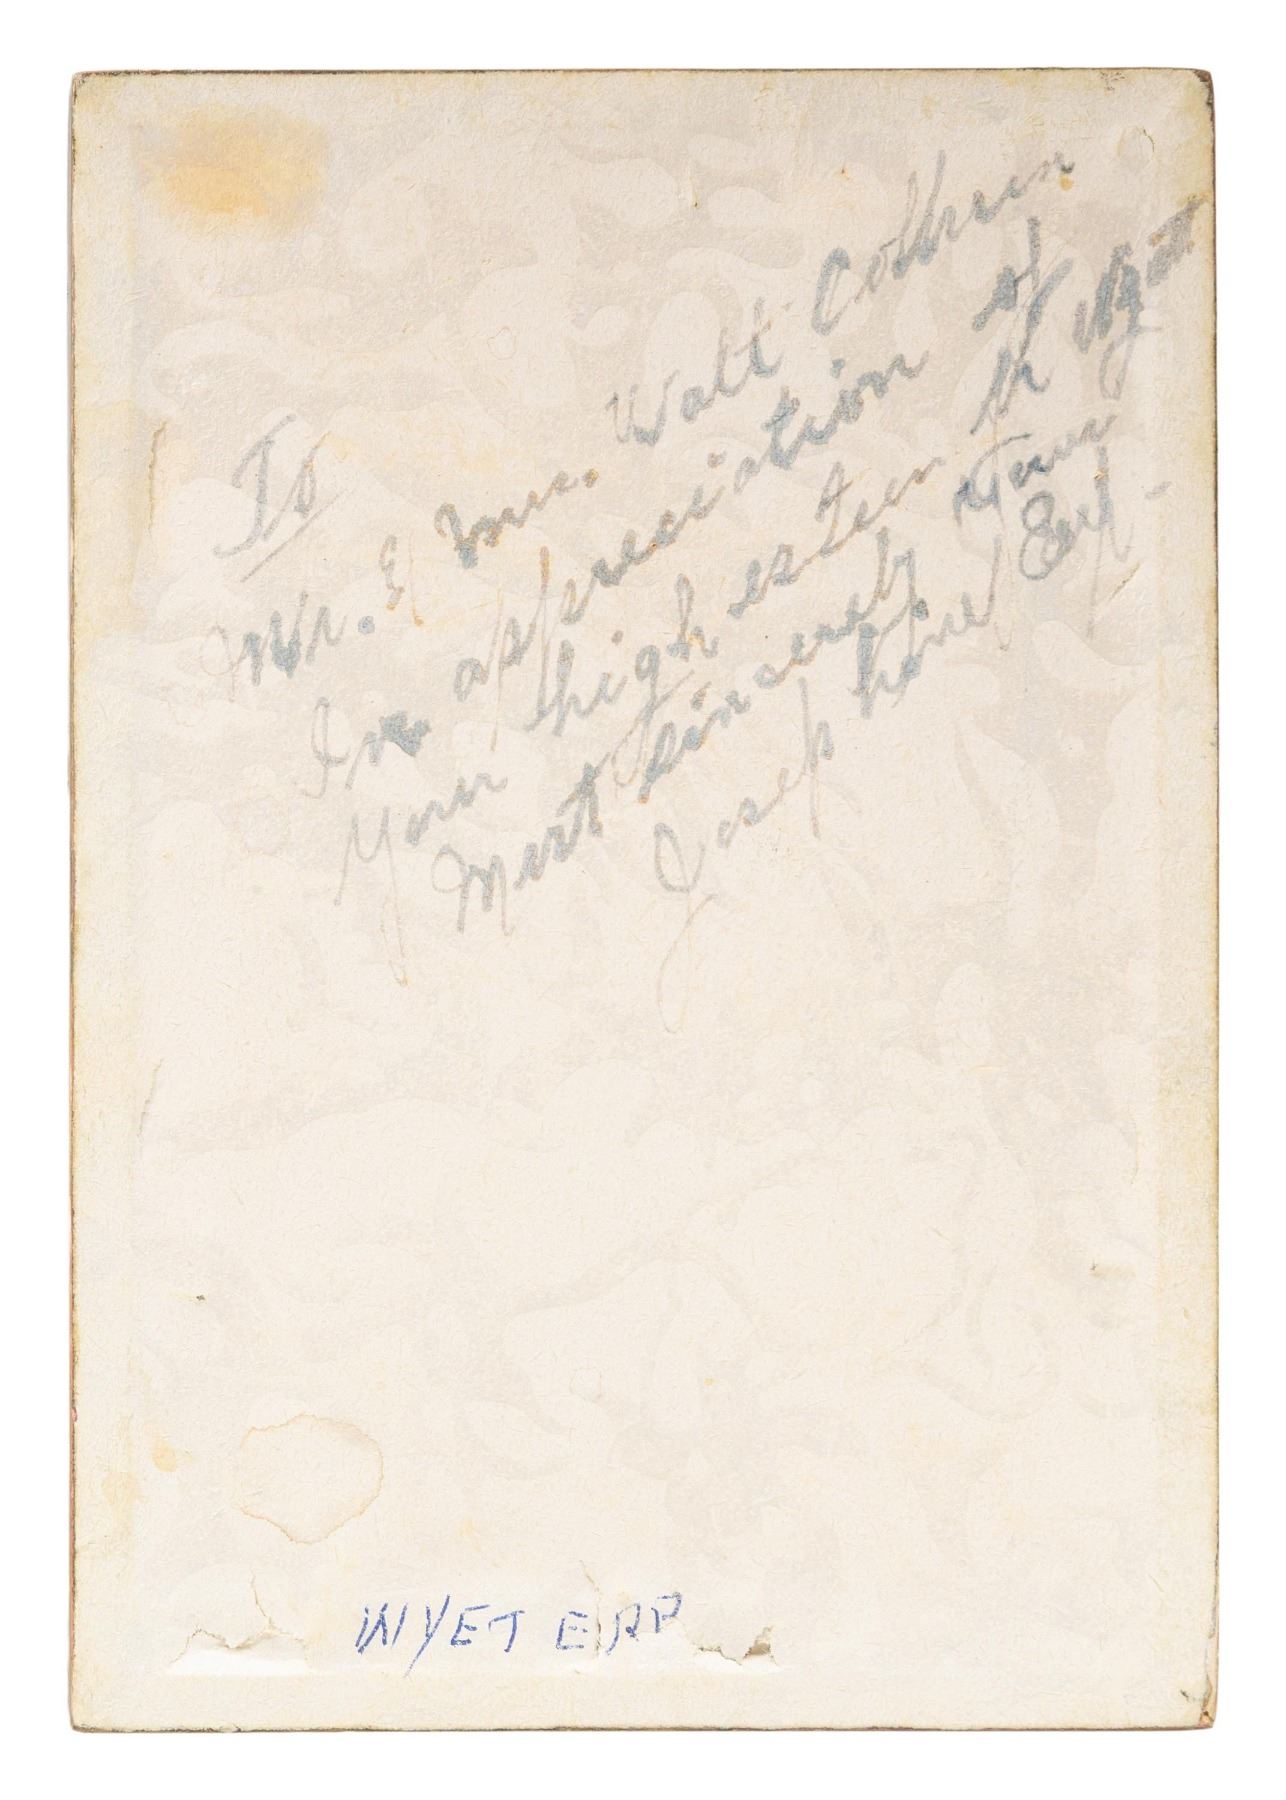 To
Mr. & Mrs. Walt Colhren
In appreciation of
Your high esteem for Wyatt
Most sincerely Yours
Josephine Earp -
WYET ERP